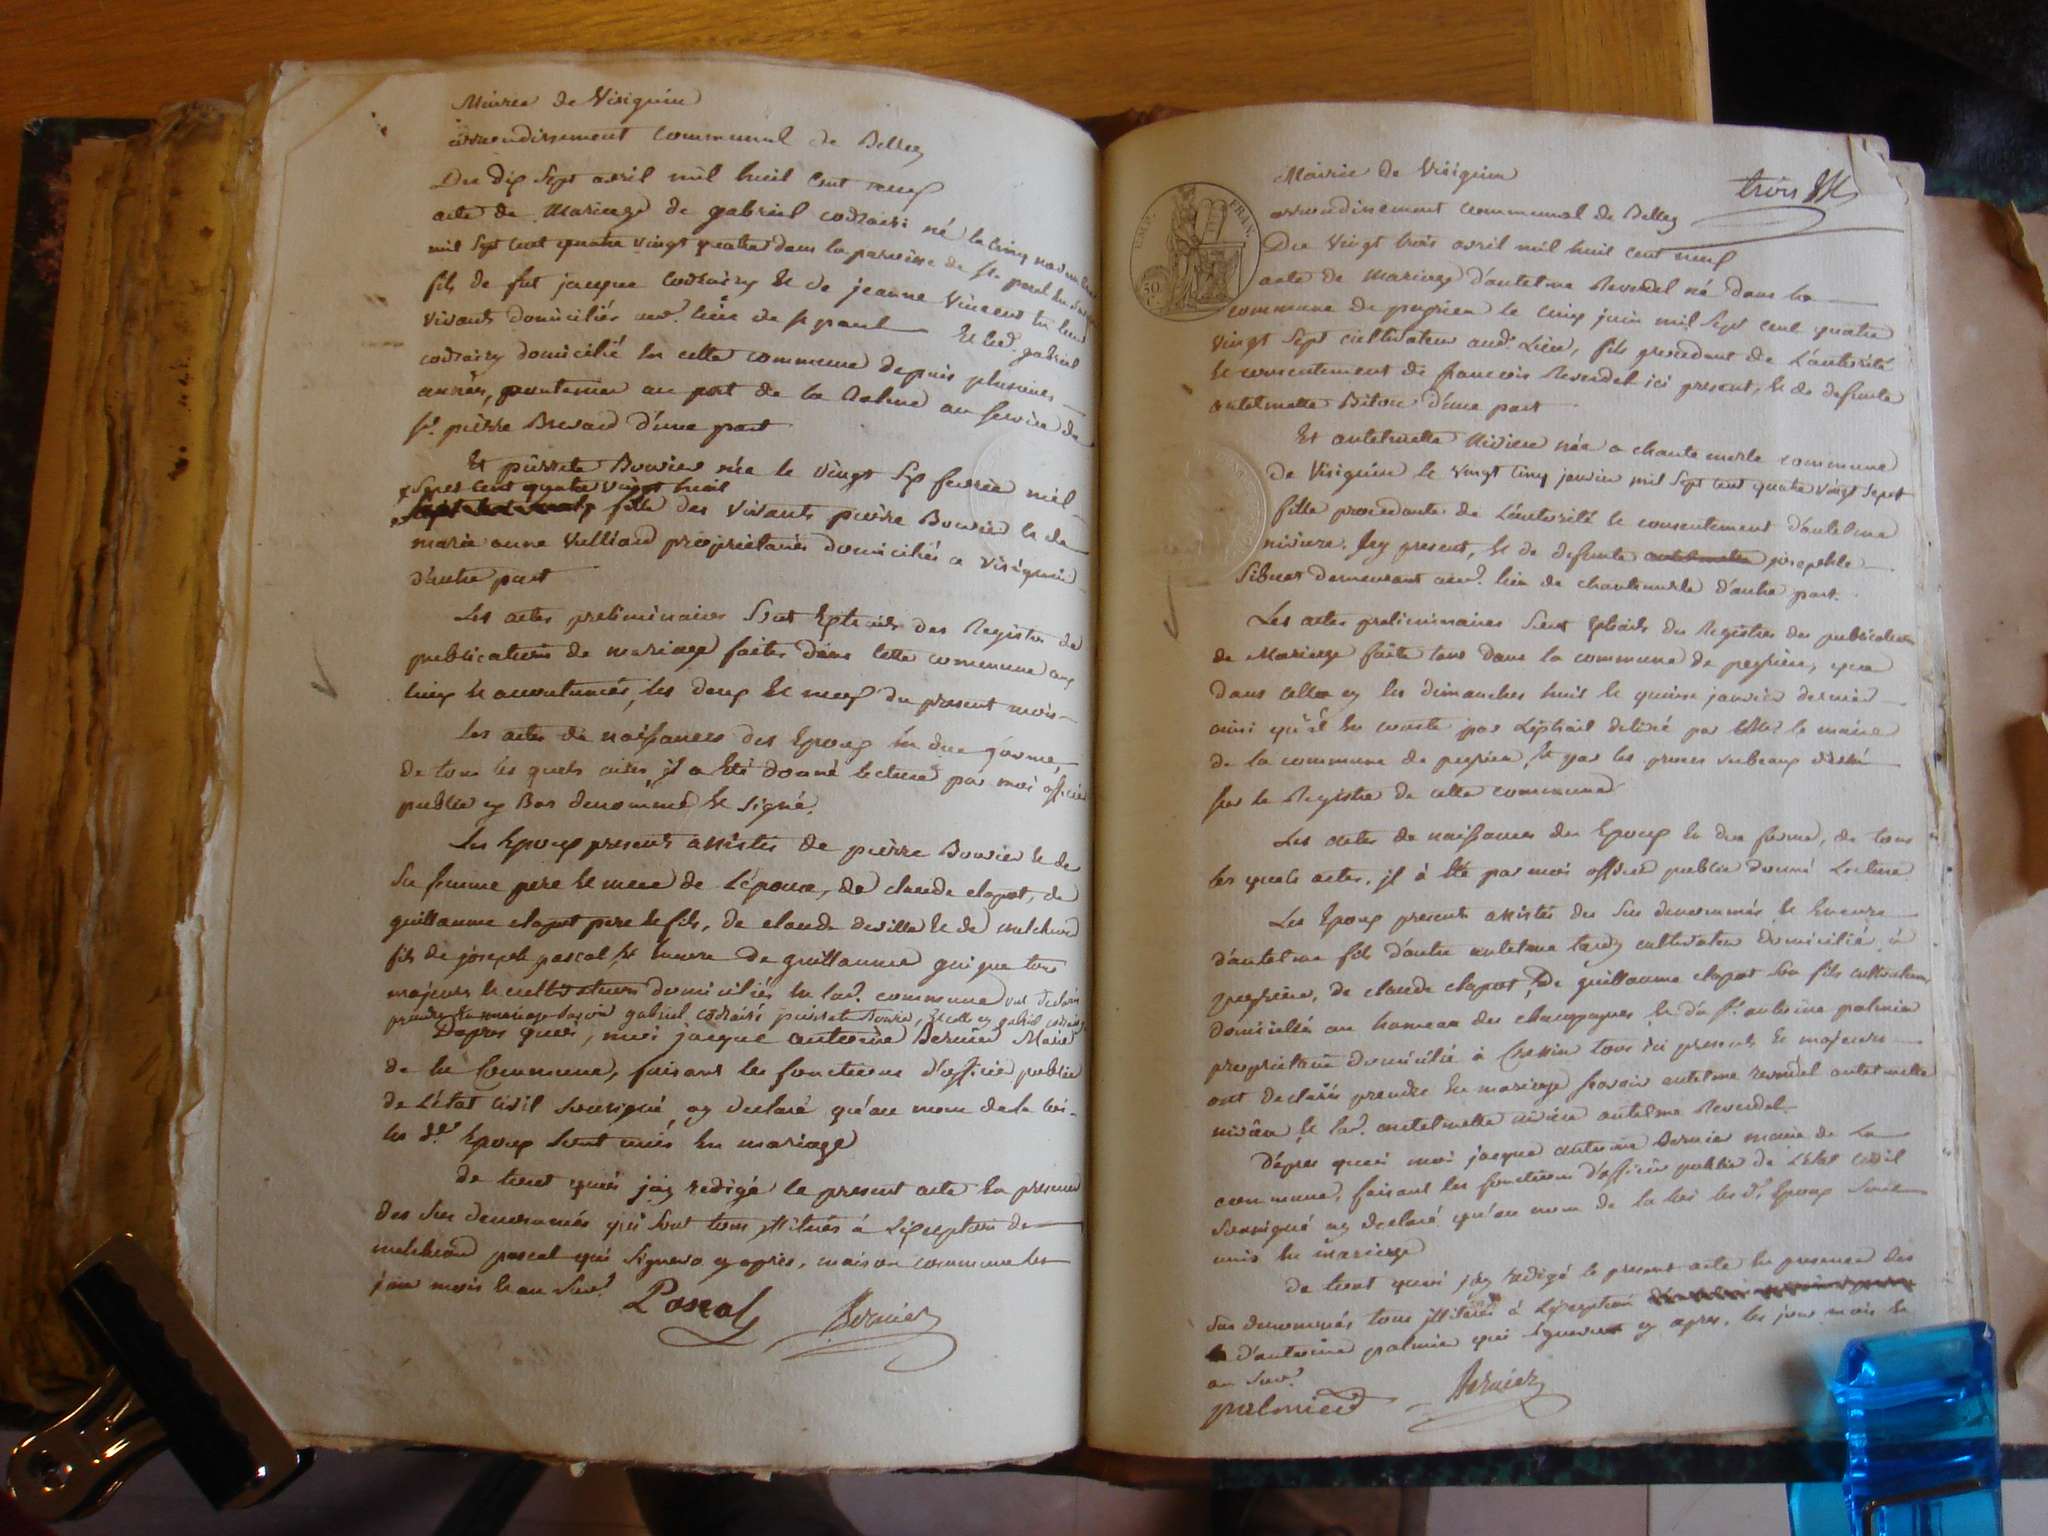 Mairie de Virignin
arrondissement communal de Belley
Du dix Sept avril mil huit cent neuf
acte de Mariage de gabriel codrairi né le cinq novembre
mil Sept cent quatre vingt quatre dans la paroisse de St
fils de fut jacque Codrairy et de jeanne Vincent
vivants domiciliés aud. lieu de St paul et led. gabriel
codrairy domicilié en cette commune depuis plusieurs
années, pontonier au port de la Balme au service de
Sr. pierre Brevard d'une part
Et pierrete Bouvier née le vingt fevrier mil
Sept cent quatre vingt huit
fille des vivants pierre Bouvier et de
marie anne Vulliard propriétaires domiciliés a virignin
d'autre part
Les actes preliminaires Sont Extraits des Registres de
publications de mariage faites dans cette commune aux
lieux et accoutumés, les deux et neuf du present mois
Les actes de naissances des Epoux En due forme,
de tous les quels actes, il a été donné lecture par moi officier
public cy Bas denommé et Signé.
Les Epoux presents assistés de pierre Bouvier et de
Sa femme pere et mere de L'épouse, de claude clapot, de
guillaume clapot pere et fils, de claude deville et de melchior
fils de joseph pascal et encore de guillaume guigue tous
majeurs et cultivateurs domiciliés en lad. commune ont declaré
prendre En mariage Savoir gabriel codrairi pierrete Bouvier, et celle cy gabriel codrairy
D'apres quoi, moi jacque antoine Bernier Maire
de la Commune, faisant les fonctions d'officier public
de L'état Civil Soussigné, ay declaré qu'au nom de la loi
les dts Epoux Sont unis En mariage
de tout quoi j'ay redigé le present acte En presence
des Sus denommés qui Sont tous illitirés à L'exeption de
melchior pascal qui Signera cy après, maison commune les
jour mois et an Susd.
Pascal Bernier
Mairie de Virignin
trois
arrondissement communal de Belley
Du vingt trois avril mil huit cent neuf
acte de Mariage d'antelme Revendel né dans la
commune de peyrieu le cinq juin mil Sept cent quatre
vingt Sept cultivateur aud. Lieu, fils procedant de L'autorité
et consentement de francois Revendel ici present, et de defunte
antelmette Biton d'une part
Et antelmette Riviere née a chantemerle commune
de Virignin le vingt cinq janvier mil Sept cent quatre vingt Sept
fille procedante de L'autorité et consentement d'antelme
riviere. Icy present, et de defunte antelmette josephte
Sibuet demeurant aud. lieu de chantemerle d'autre part.
Les actes preliminaires Sont Extraits des Registres des publications
de Mariage faite tant dans la commune de peyrieu, que
dans celle cy les dimanches huit et quinze janvier dernier
ainsi qu'il En conste par L'extrait delivré par Mr. le maire
de la commune de peyrieu, Et par les proces verbeaux
Sur le Registre de cette commune
Les actes de naissances des Epoux En due forme, de tous
les quels actes, il à été par moi officier public donné Lecture
Les Epoux presents assistés des Sus denommés et Encore
d'antelme fils d'autre antelme tardy cultivateur domicilié à
peyrieu, de claude clapot, De guillaume clapot Son fils cultivateurs
domiciliés au hameau des champagnes, Et du Sr. antoine palmier
proprietaire domicilié à Cressin tous ici presents et majeurs
ont declaré prendre En mariage Savoir antelme revendel antelmette
rivière Et lad. antelmette riviere antelme Revendel.
D'apres quoi moi jacque antoine Bernier maire de La
commune, faisant les fonctions d'officier public de L'état civil
Soussigné ay declaré qu'au nom de la loi les dts Epoux Sont
unis En mariage
de tout quoi j'ay redigé le present acte En presence des
Sus denommés tous illitirés à L'exeption
d'antoine palmier qui Signera cy apres, les jour mois et
an Susd.
palmier Bernier